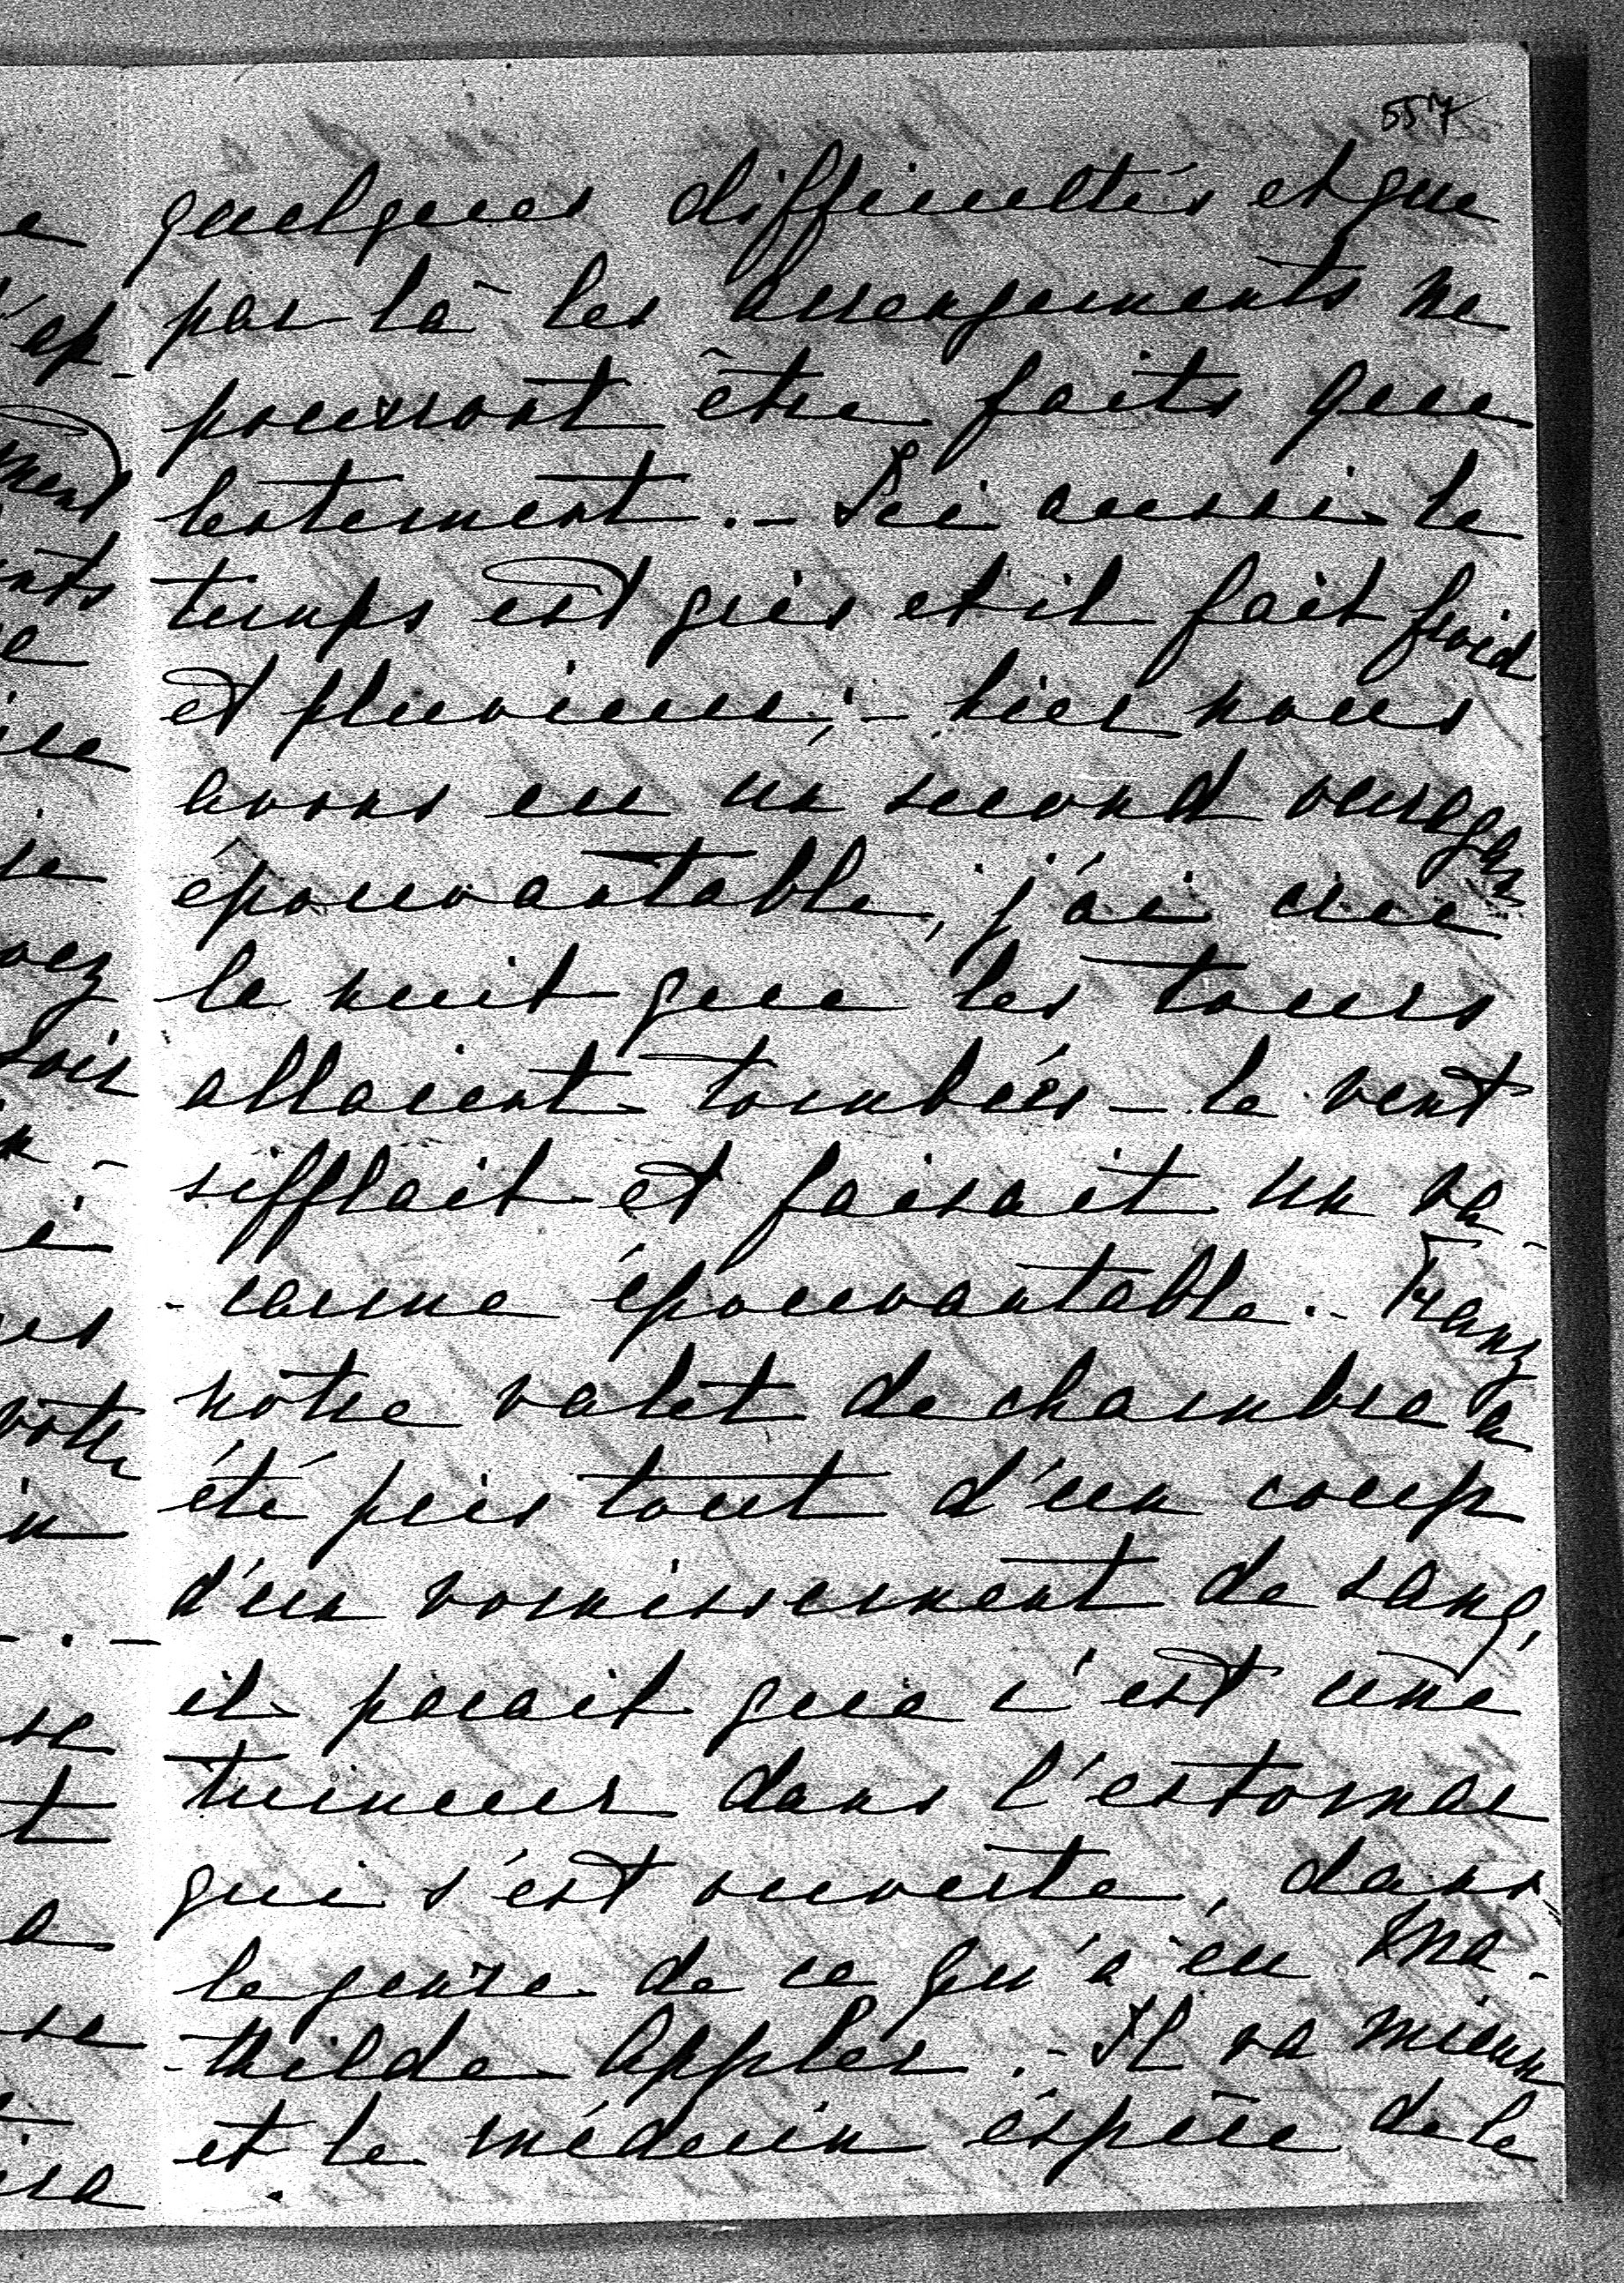 557
quelques difficultés et que
par là les arrengements ne
pourront être faits que
lentement. - Ici aussi le
temps est gris et il fait froid
et pluvieux; - hier nous
avons eu un second ouragan
épouvantable, j'ai crue
la nuit que les tours
allaient tombées - le vent
sifflait et faisait un va-
-carme épouvantable. - Franz
notre valet de chambre a
été pris tout d'un coup
d'un vomissement de sang,
il parait que c'est une
tumeur dans l'estomac
qui s'est ouverte, dans
le genre de ce qu'a eu Ma-
-thilde Appler. - Il va mieux
et le médecin éspère de le